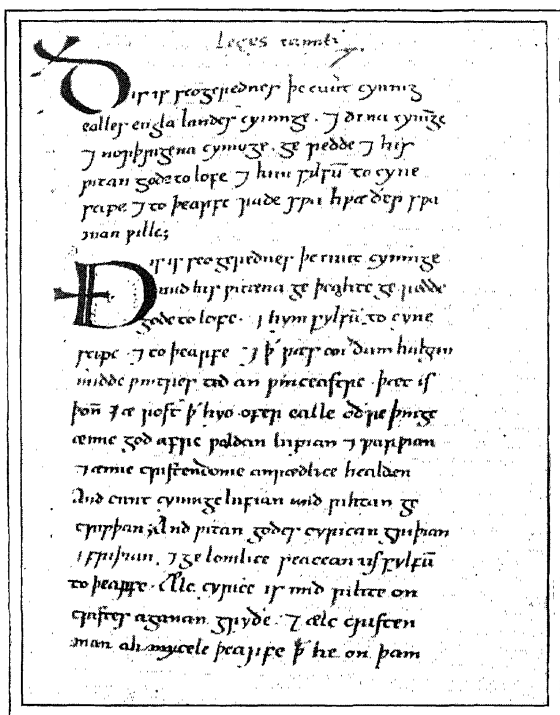 Leges canuti
Ðis is seo gerednes þe cnut cyning
ealles engla landes cyninge · ⁊ dena cyninge
⁊ norþrigena cyninge · ge redde ⁊ his
ƿitan gode to lofe ⁊ him sylfū to cyne
scipe ⁊ to þearfe rade sƿa hƿæðer sƿa
man ƿille;
Ðis is seo gerednes þe cnut cyninge
mid his ƿitena ge þeahte ge redde
gode to lofe · ⁊ hym sylfū to cyne
scipe · ⁊ to þearfe · ⁊ ꝥ ƿæs on ðam halgan
midde ƿintres tid on ƿinceastre · þæt is
þoñ ærost ꝥ hyo ofer ealle oðre þinge
ænne god æfre ƿoldan lufian ⁊ ƿurþian
⁊ ænne cristendome anrædlice healden
And cnut cyninge lufian mid rihtan ge
trƿþan; And ƿitan godes cyrican griþian
⁊ friþian · ⁊ ge lomlice secean us sylfū
to þearfe · Ælc cyrice is mid rihte on
cristes agenan gryðe · ⁊ ælc cristen
man ah mycele þearfe ꝥ he on þam